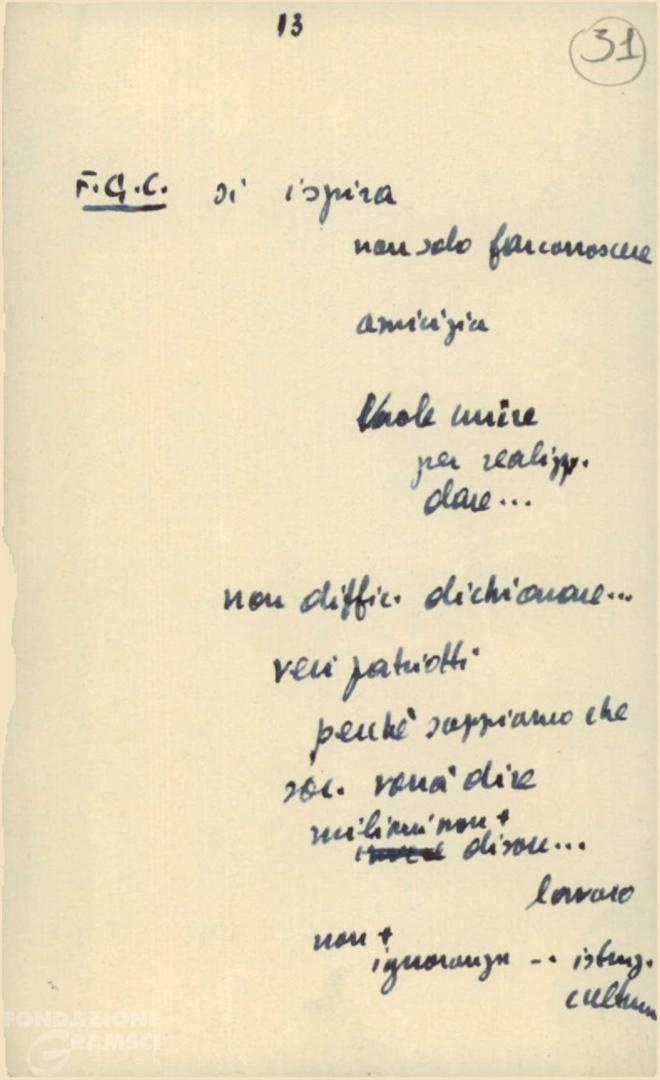 13
31
F.G.C. si ispira
non solo far conoscere
amicizia
Vuole unire
per realizz.
dare...
non diffic. dichiarare...
veri patriotti
perchè sappiamo che
soc. vorrà dire
milioni non +
disocc...
lavoro
non +
ignoranza -.. istruz.
cultura
FONDAZIONE
GRAMSCI